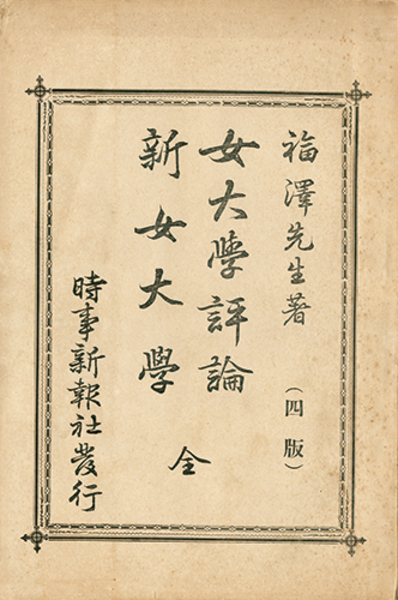 福澤先生著
（四版）
女大學評論
新女大學
全
時事新報社發行